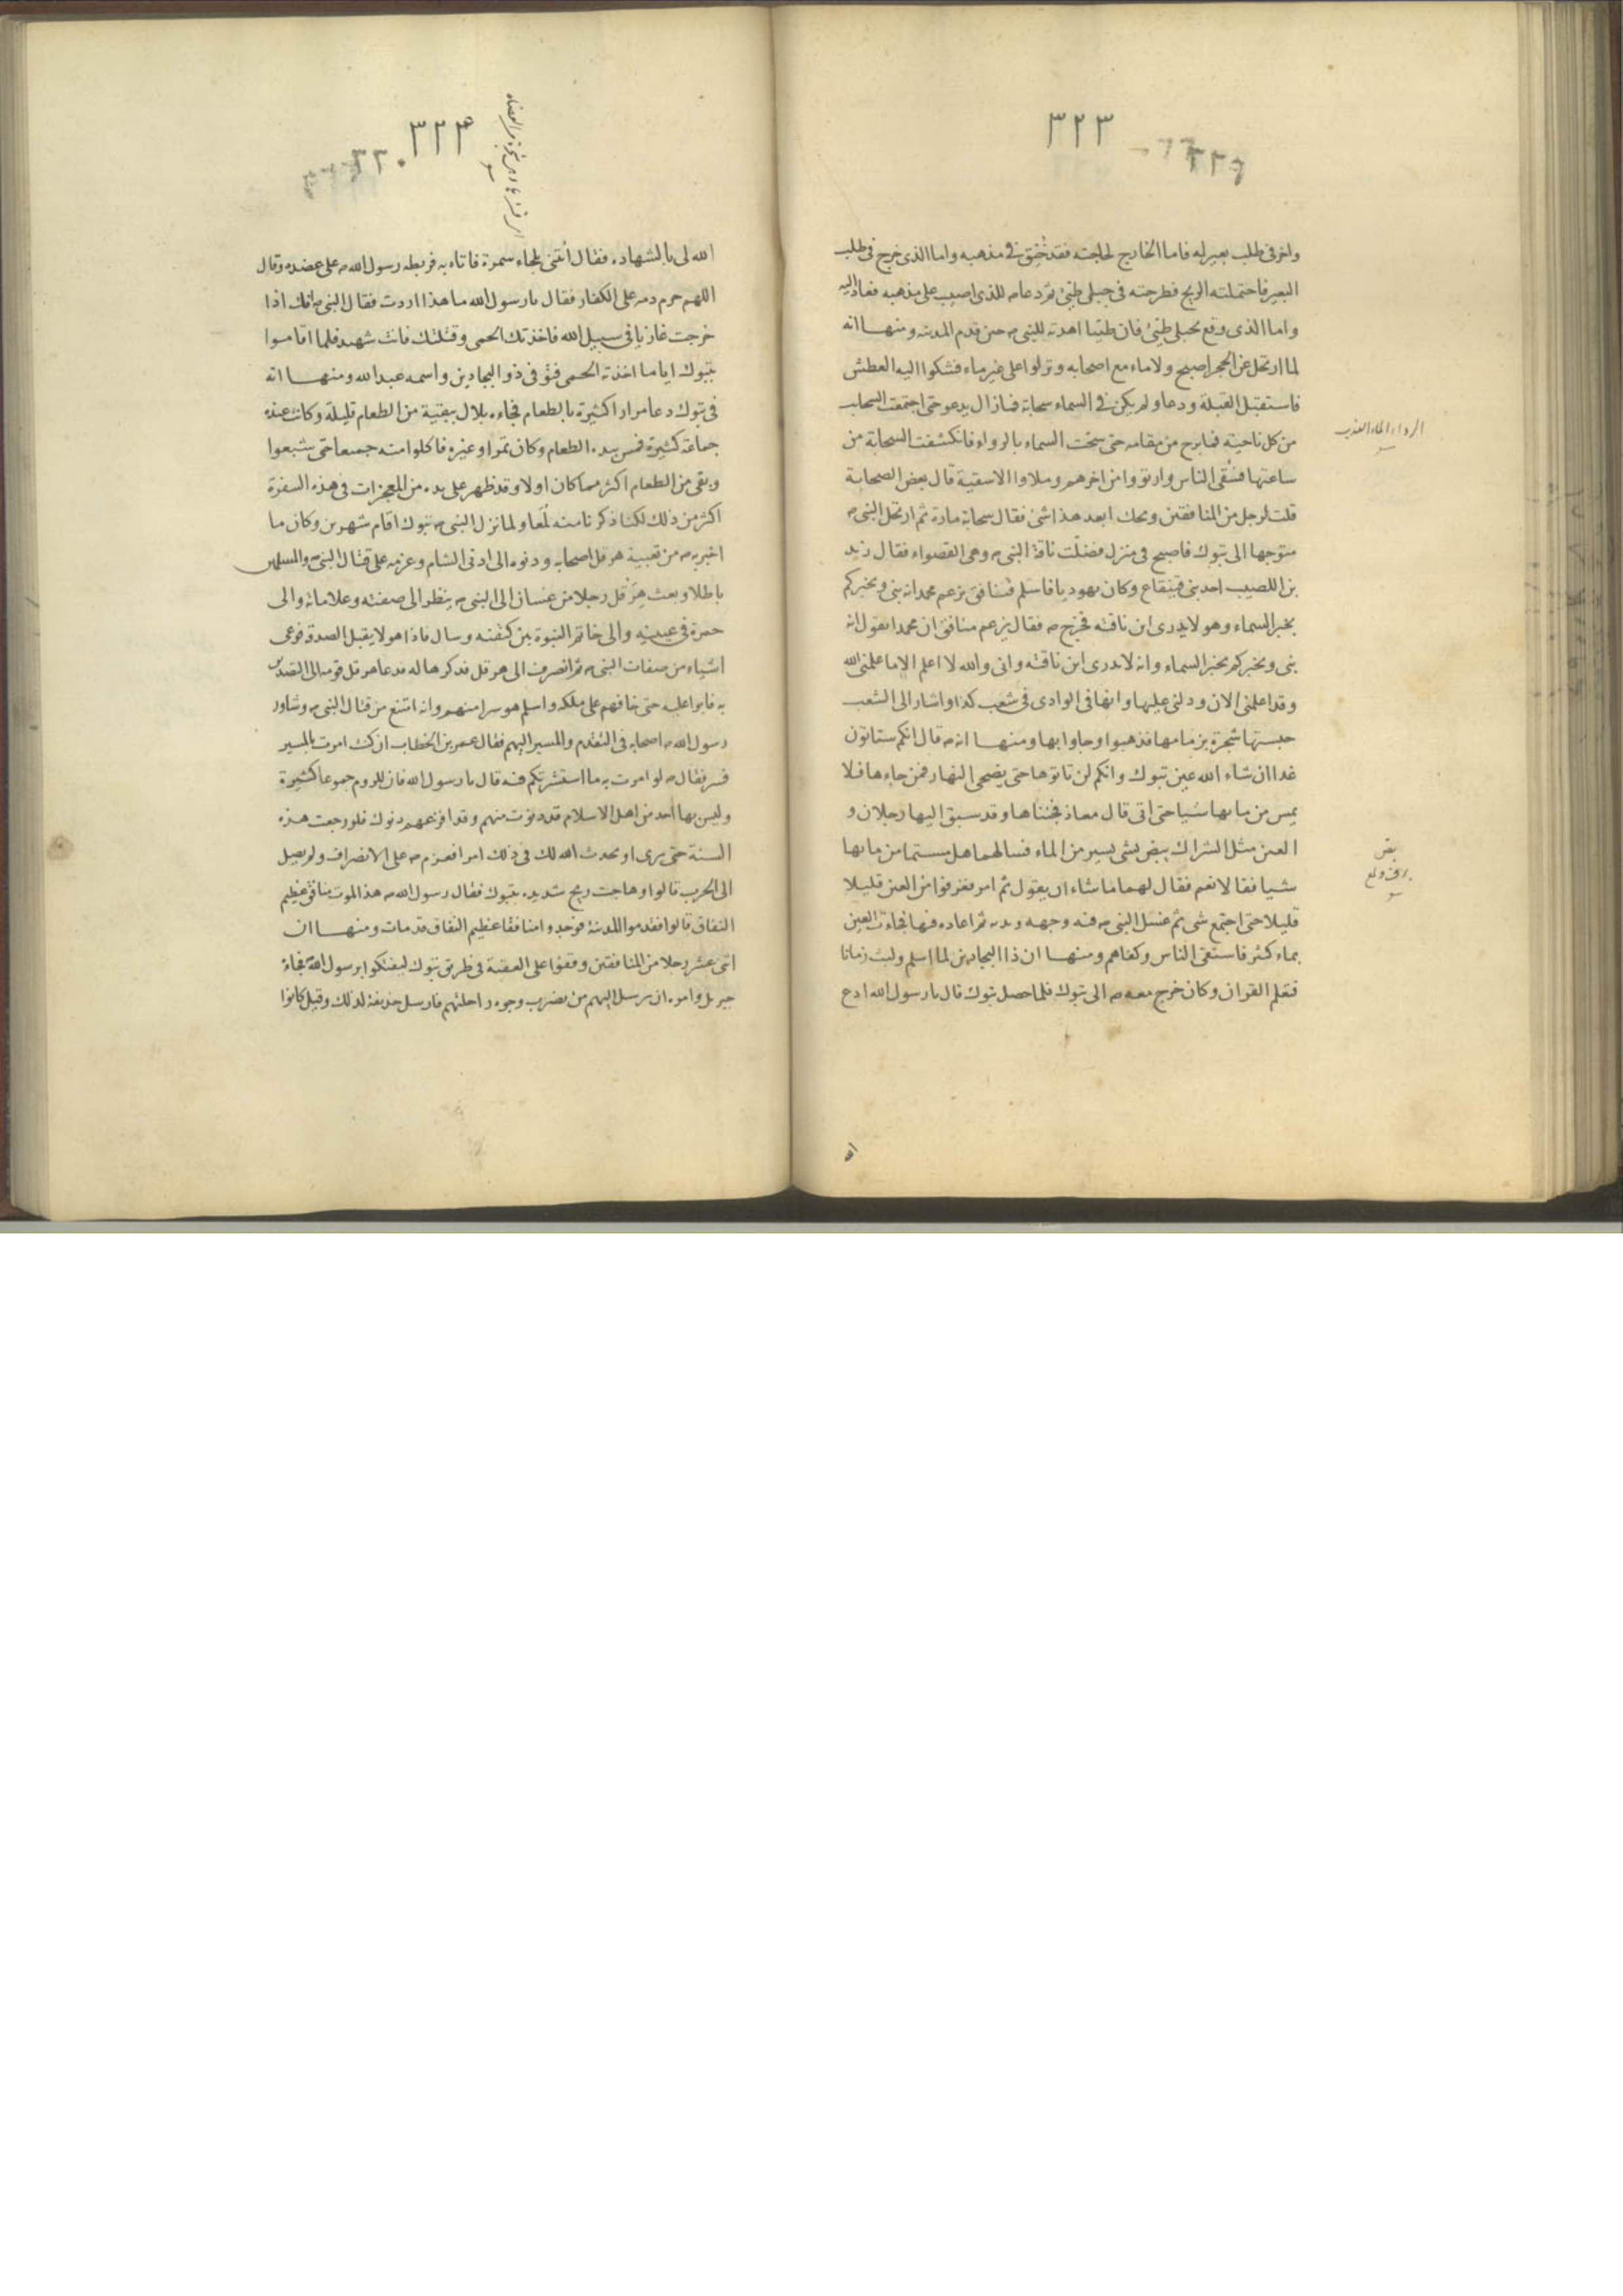 ٣٢٣
٣٢٩
واخر في طلب بعير له فاما الخارج لحاجته فقد خُنِق في مذهبه واما الذي خرج في طلب
البعير فاحتملته الريح فطرحته في جبلى طيئ ثم دعا ص للذي اصيب على مذهبه فعاد اليه
واما الذي وقع بجبلى طيئ فان طيئا اهدته للنبي ص حين قدم المدينه ومنها انه
لما ارتحل عن الحجر اصبح ولا ماء مع اصحابه ونزلوا على غير ماء فشكوا اليه العطش
فاستقبل القبلة ودعا ولم يكن في السماء سحابة فما زال يدعو حتى اجتمعت السحاب
من كل ناحية فما برح من مقامه حتى سحت السماء بالرواء فانكشفت السحابة من
ساعتها فسُقى الناس وارتووا من اخرهم وملاوا الاسقية قال بعض الصحابة
قلت لرجل من المنافقين ويحك ابعد هذا شئ فقال سحابة مارة ثم ارتحل النبي ص
متوجها الى تبوك فاصبح في منزل فضلّت ناقة النبي ص وهي القصواء فقال زيد
بن اللصيب احد بني قينقاع وكان يهوديا فاسلم فنافق يزعم محمد انه نبي ويخبركم
بخبر السماء وهو لا يدرى اين ناقته فخرج ص فقال يزعم منافق ان محمدا يقول انه
نبي ويخبركم بخبر السماء وانه لا يدرى اين ناقته وانى والله لا اعلم الا ما علمني الله
وقد اعلمني الان ودلني عليها وانها في الوادي في شعب كذا واشار الى الشعب
حبستها شجرة بزمامها فذهبوا وجاوا بها ومنها انه ص قال انكم ستاتون
غدا ان شاء الله عين تبوك وانكم لن تاتوها حتى يضحى النهار فمن جاءها فلا
يمس من مايها شيا حتى اتى قال معاذ فجئناها وقد سبق اليها رجلان و
العين مثل الشراك يبض بشي يسير من الماء فسالهما هل مسستما من مايها
شيا فقالا نعم فقال لهما ما شاء ان يقول ثم امر فغرفوا من العين قليلا
قليلا حتى اجتمع شى ثم غسل النبي ص فيه وجهه ويديه ثم اعاده فيها فجاءت العين
بماء كثر فاستقى الناس وكفاهم ومنها ان ذا البجادين لما اسلم ولبث زمانا
فتعلم القران وكان خرج معه ص الى تبوك فلما حصل تبوك قال يا رسول الله ادع
الرواء الماء العذب
يبض
الله
٣٢٤
٣٣٠
الله لي بالشهادة فقال أئتنى بلحاء سمرة فاتاه به فربطه رسول الله ص على عضده وقال
اللهم حرم دمه على الكفار فقال يا رسول الله ما هذا اردت فقال النبي ص انك اذا
خرجت غازيا في سبيل الله فاخذتك الحمى وقتلتك فانت شهيد فلما اقاموا
بتبوك اياما اخذته الحمى فتوفى ذو البجادين واسمه عبد الله ومنها انه
في تبوك دعا مرارا كثيرة بالطعام فجاءه بلال ببقية من الطعام قليلة وكانت عنده
جماعة كثيرة فمس بيده الطعام وكان تمرا وغيره فاكلوا منه جميعا حتى شبعوا
وبقى من الطعام اكثر مما كان اولا وقد ظهر على يده من المعجزات في هذه السفرة
اكثر من ذلك لكنا ذكرنا منه لُمَعا ولما نزل النبي ص تبوك اقام شهرين وكان ما
اخبر به ص من تعبية هرقل اصحابه ودنوه الى ادنى الشام وعزمه على قتال النبي والمسلمين
باطلا وبعث هِرَقل رجلا من غسان الى النبي ص ينظر الى صفته وعلاماته والى
حمرة في عينيه والى خاتم النبوة بين كتفيه وسال فاذا هو لا يقبل الصدقة فوعى
اشياء من صفات النبي ص ثم انصرف الى هرقل فذكرها له فدعا هرقل قومه الى التصديق
به فابوا عليه حتى خافهم على ملكه واسلم هو سرا منهم وانه امتنع من قتال النبي ص وشاور
رسول الله ص اصحابه في التقدم والمسير اليهم فقال عمر بن الخطاب ان كنت امرت بالمسير
فسر فقال ص لو امرت به ما استشرتكم فيه قال يا رسول الله فان للروم جموعا كثيرة
وليس بها احد من اهل الاسلام قد دنوت منهم وقد افزعهم دنوك فلو رجعت هذه
السنة حتى يرى او يحدث الله لك في ذلك امرا فعزم ص على الانصراف ولم يصل
الى الحرب قالوا وهاجت ريح شديدة بتبوك فقال رسول الله ص هذا لموت منافق عظيم
النفاق قالوا فقدموا المدينة فوجدوا منافقا عظيم النفاق قد مات ومنها ان
اثنى عشر رجلا من المنافقين وقفوا على العقبة في طريق تبوك ليفتكوا برسول الله ص فجاءه
جبريل وامره ان يرسل اليهم من يضرب وجوه راحلتهم فارسل حذيفة لذلك وقيل كانوا